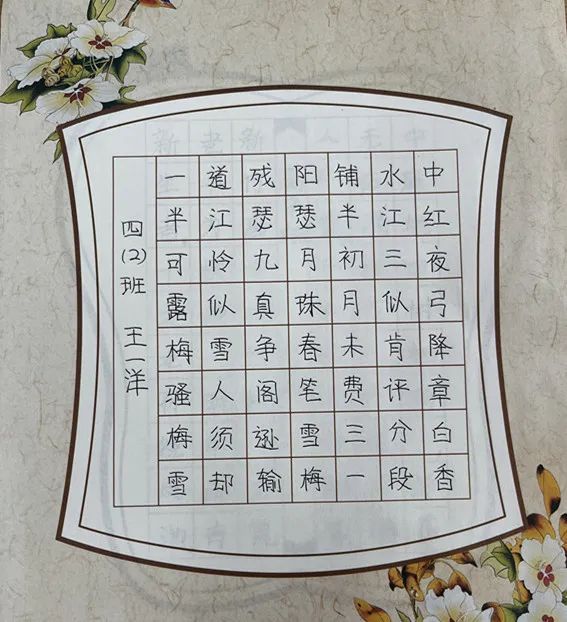 一道残阳铺水中
半江瑟瑟半江红
可怜九月初三夜
露似真珠月似弓
梅雪争春未肯降
骚人阁笔费评章
梅须逊雪三分白
雪却输梅一段香
四(2)班 王一洋